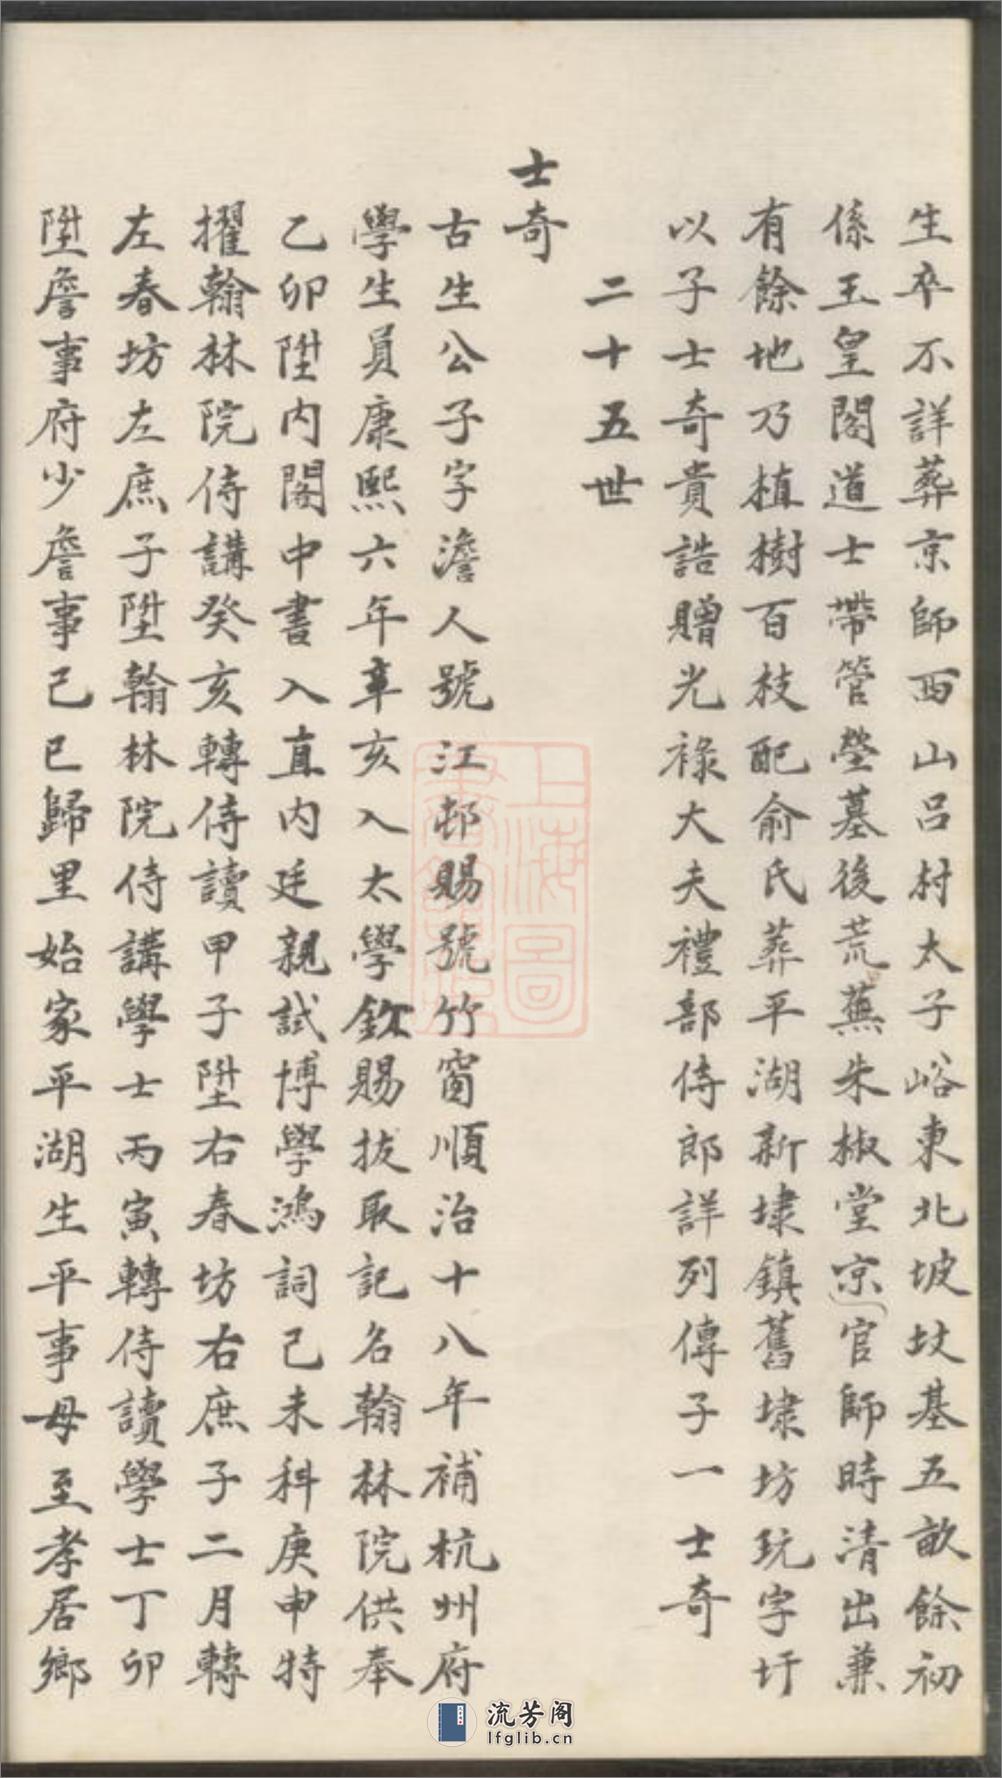 生卒不詳葬京師西山呂村太子峪東北坡坟基五畝餘初
係玉皇閣道士帶管塋墓後荒蕪朱椒堂京官師時清出兼
有餘地乃植樹百枝配俞氏葬平湖新埭鎮舊埭坊玩字圩
以子士奇貴誥贈光祿大夫禮部侍郎詳列傳子一士奇
二十五世
士奇
古生公子字澹人號江邨賜號竹窗順治十八年補杭州府
學生員康熙六年辛亥入太學欽賜拔取記名翰林院供奉
乙卯陞內閣中書入直內廷親試博學鴻詞己未科庚申特
擢翰林院侍講癸亥轉侍讀甲子陞右春坊右庶子二月轉
左春坊左庶子陞翰林院侍講學士丙寅轉侍讀學士丁卯
陞詹事府少詹事己巳歸里始家平湖生平事母至孝居鄉
上海圖
書館藏
流芳阁
lfglib.cn